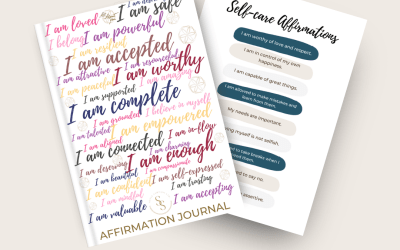 I am safe
I am loved
I belong I am powerful
I am resilient
I am accepted
I am attractive I am resourceful
I am peaceful I am amazing
I am worthy
I am supported
I am complete
I am grounded I believe in myself
I am talented
I am empowered
I am aligned
I am connected I am in-flow
I am charming
I am deserving
I am enough
I am beautiful I am compassionate
I am confident I am self-expressed
I am mindful I am trusting
I am valuable I am accepting
S
S
AFFIRMATION JOURNAL
Self-care Affirmations
I am worthy of love and respect.
I am in control of my own
happiness.
I am capable of great things.
I am allowed to make mistakes and
learn from them.
My needs are important.
ing myself is not selfish.
to take breaks when I
need them.
to say no.
assertive.